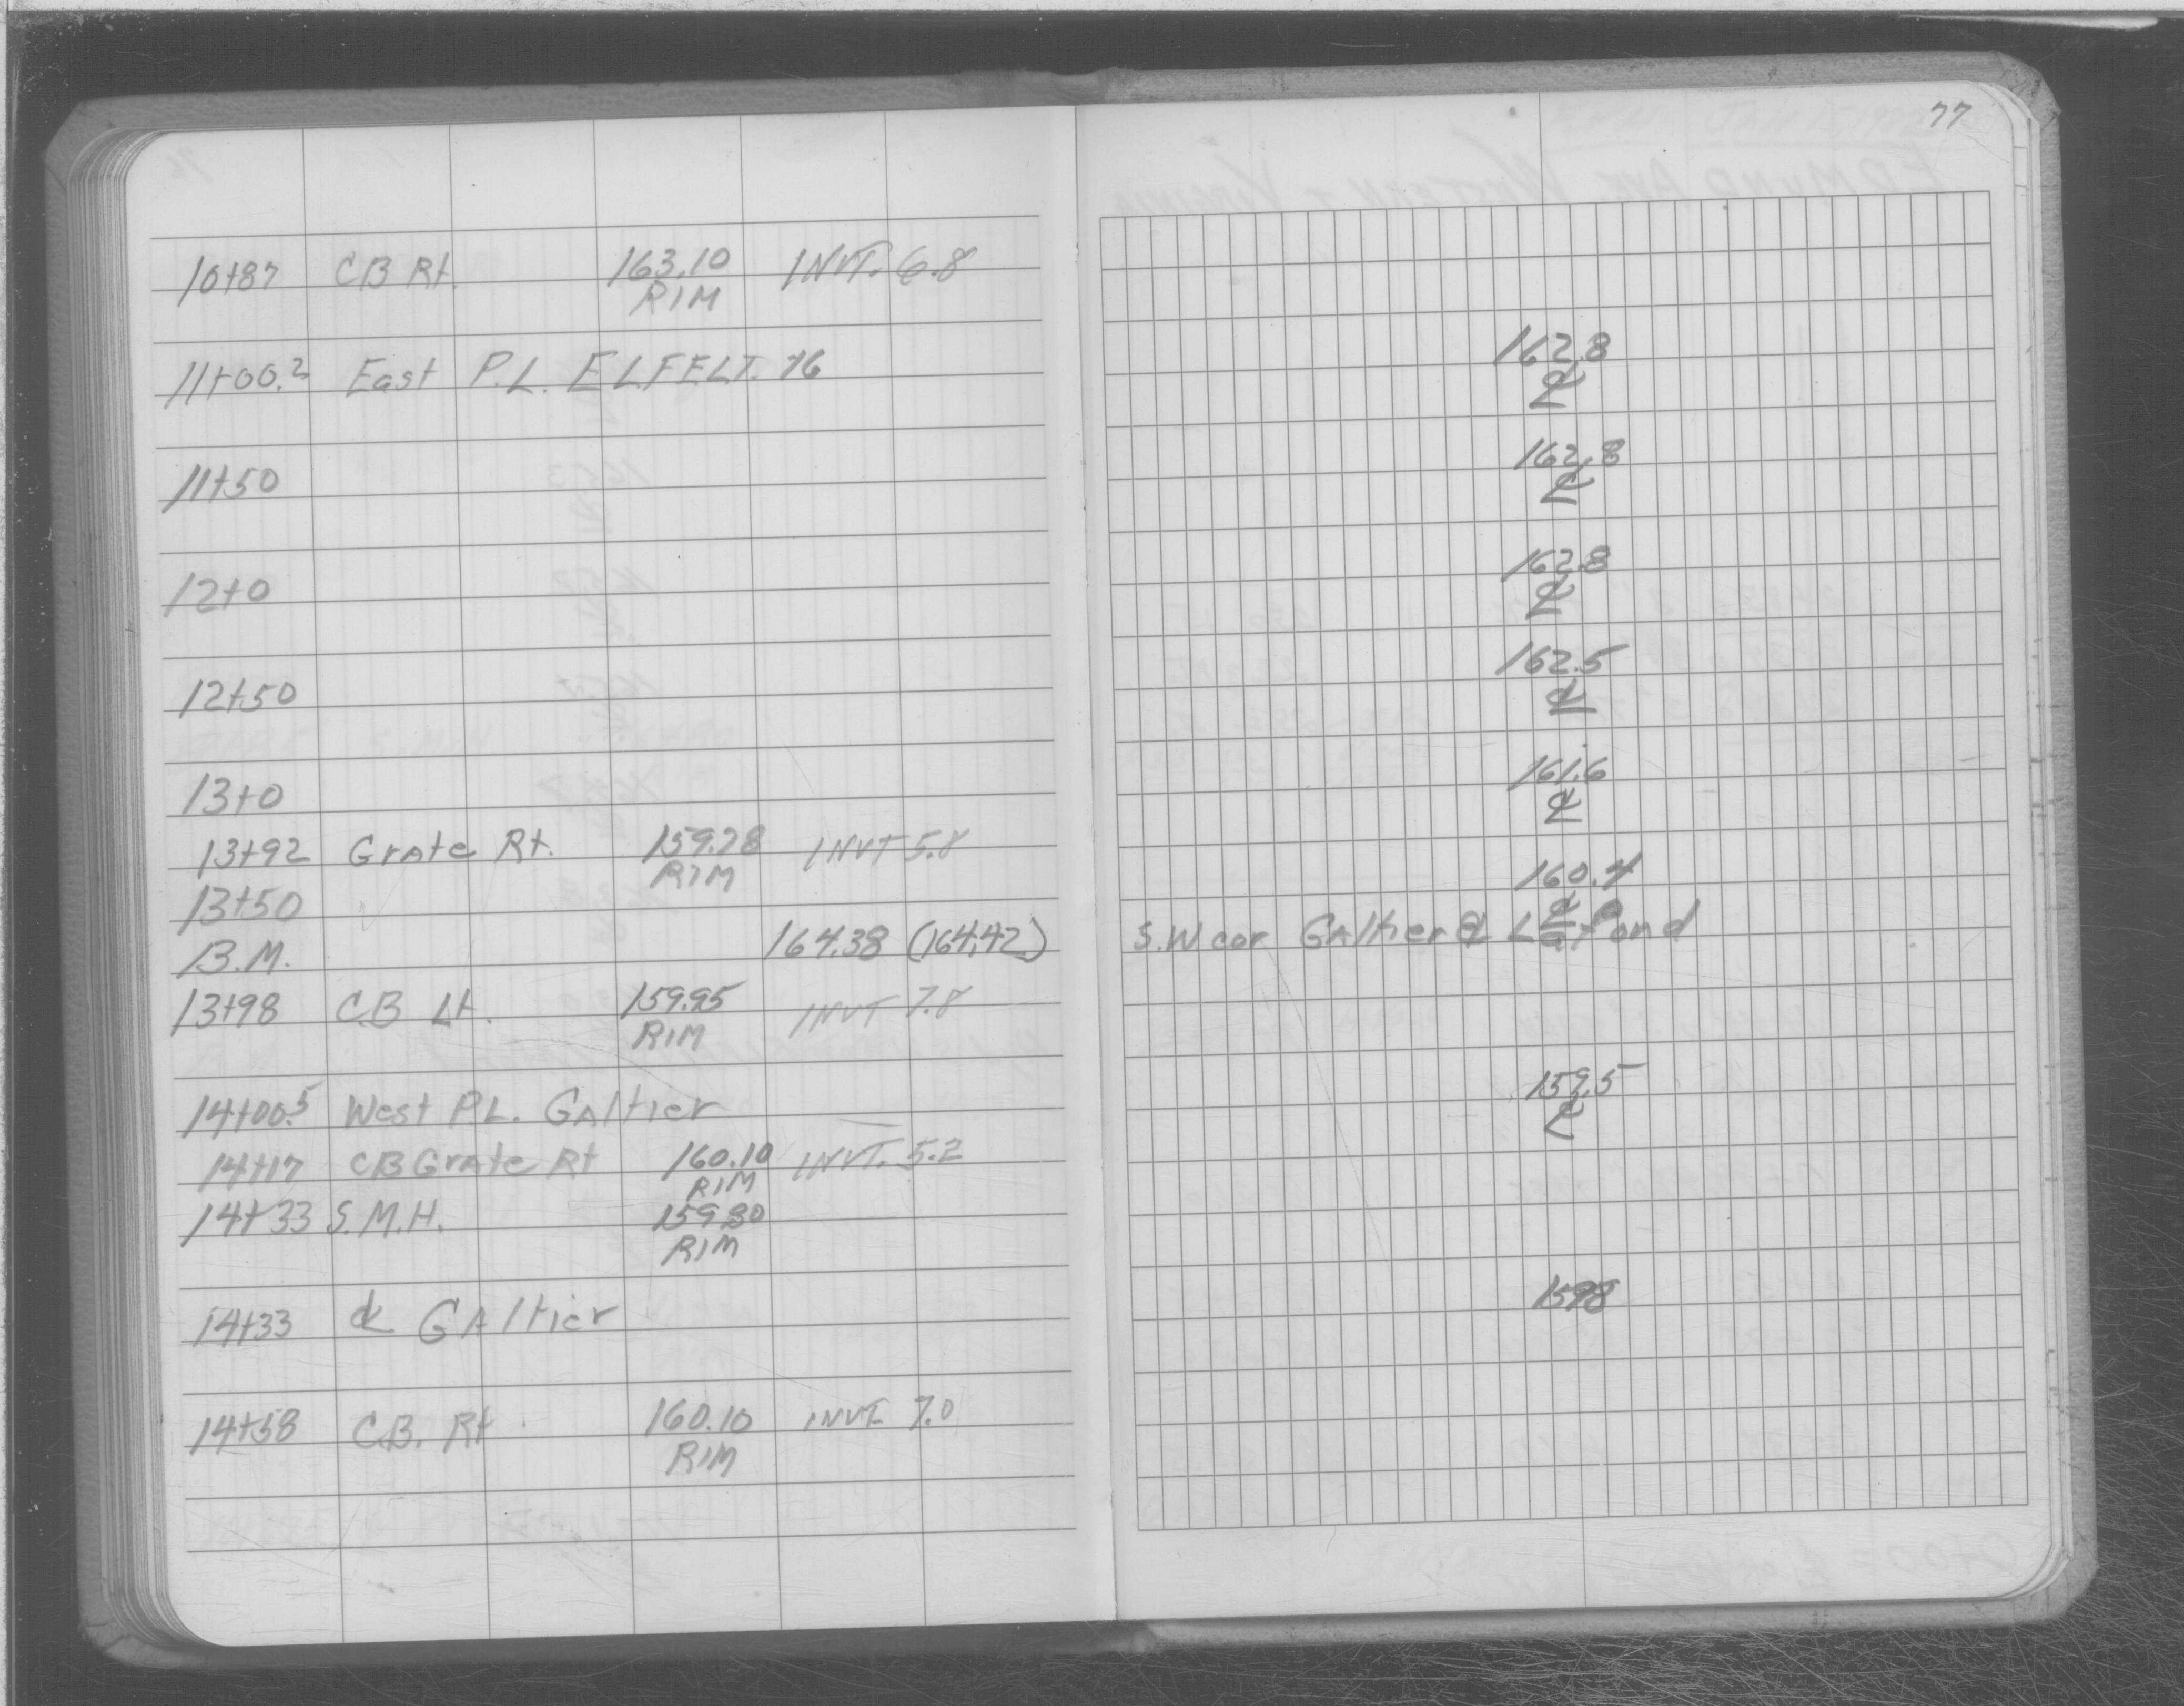 77
10+87 CB Rt. 163.10 INVT. 6.8
RIM
11+00.2 East P.L. ELFELT. 76 162.8
℄
11+50 162.8
℄
12+0 162.8
℄
12+50 162.5
℄
13+0 161.6
℄
13+92 Grate Rt. 159.28 INVT 5.8
RIM
13+50 160.4
℄
B.M. 164.38 (164.42) S.W cor Galtier & Lafond
13+98 C.B Lt. 159.95 INVT 7.8
RIM
14+00.5 West P.L. Galtier 159.5
℄
14+17 CB Grate Rt 160.10 INVT. 5.2
RIM
14+33 S.M.H. 159.80
RIM
14+33 ℄ Galtier 159.8
14+58 C.B. Rt 160.10 INVT. 7.0
RIM